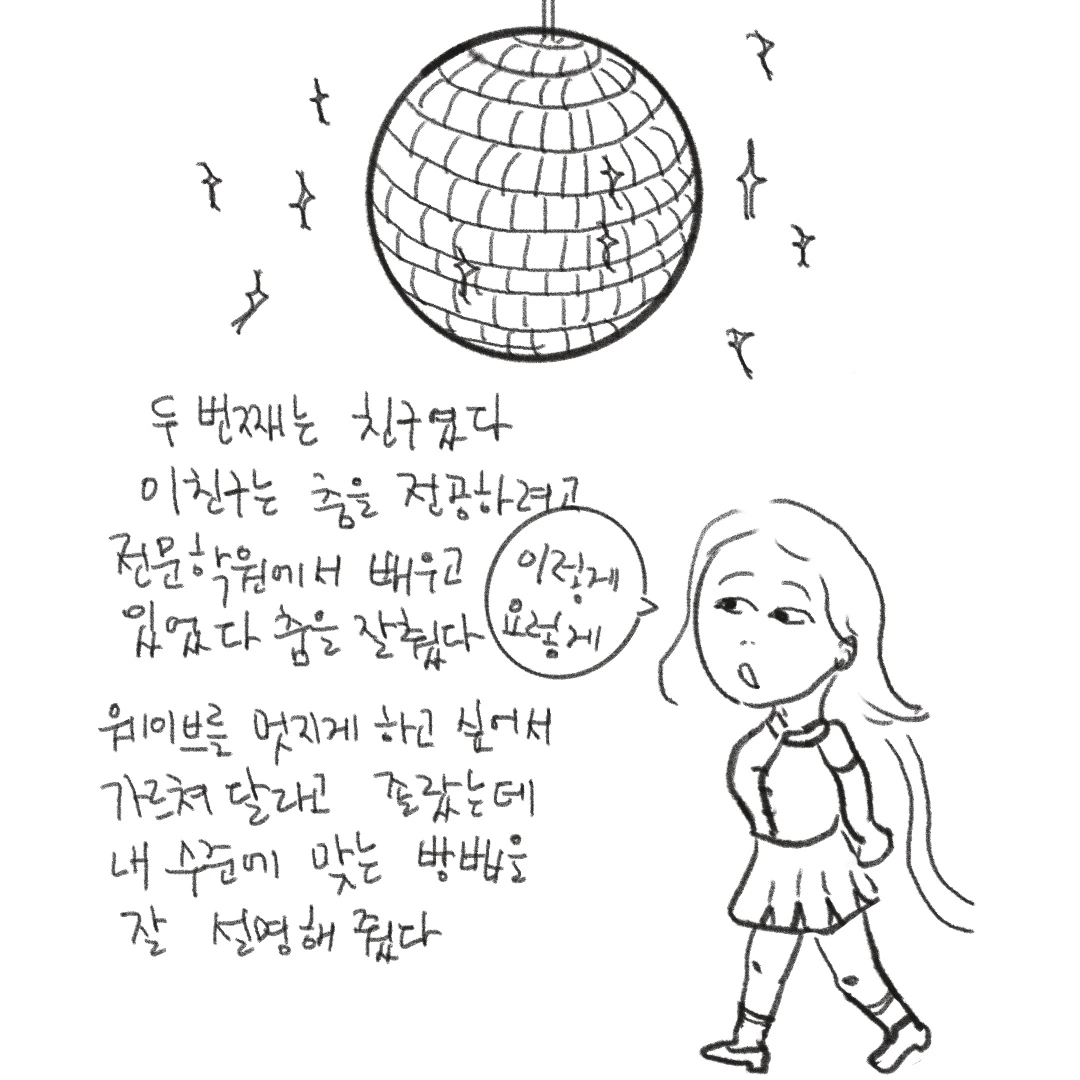 두 번째는 친구였다
이친구는 춤을 전공하려고
전문학원에서 배우고
있었다 춤을 잘췄다
이렇게
요렇게
웨이브를 멋지게 하고 싶어서
가르쳐 달라고 졸랐는데
내 수준에 맞는 방법을
잘 설명해 줬다